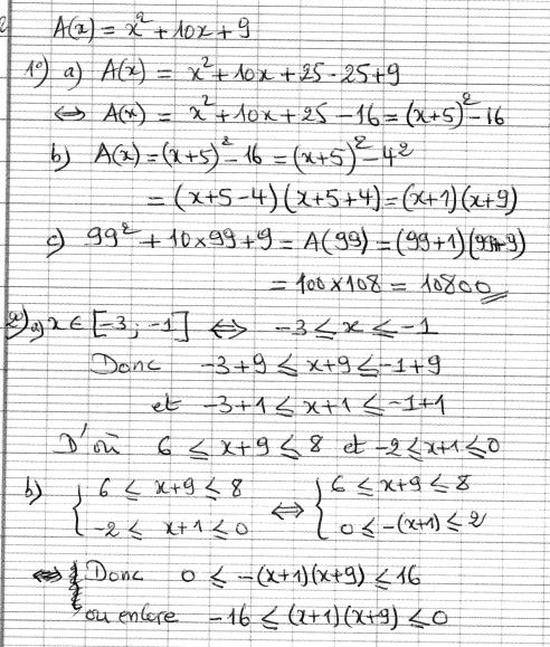 A(x) = x² + 10x + 9
1°) a) A(x) = x² + 10x + 25 - 25 + 9
⇔ A(x) = x² + 10x + 25 - 16 = (x+5)² - 16
b) A(x) = (x+5)² - 16 = (x+5)² - 4²
= (x+5-4)(x+5+4) = (x+1)(x+9)
c) 99² + 10×99 + 9 = A(99) = (99+1)(99+9)
= 100×108 = 10800
2°) a) x ∈ [-3 ; -1] ⇔ -3 ≤ x ≤ -1
Donc -3+9 ≤ x+9 ≤ -1+9
et -3+1 ≤ x+1 ≤ -1+1
D'où 6 ≤ x+9 ≤ 8 et -2 ≤ x+1 ≤ 0
b) { 6 ≤ x+9 ≤ 8 ⇔ { 6 ≤ x+9 ≤ 8
-2 ≤ x+1 ≤ 0 0 ≤ -(x+1) ≤ 2
Donc 0 ≤ -(x+1)(x+9) ≤ 16
ou encore -16 ≤ (x+1)(x+9) ≤ 0